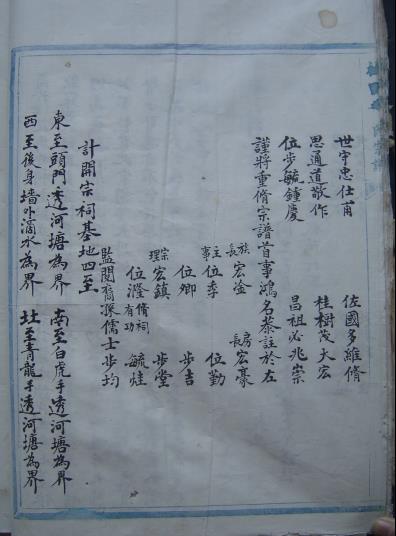 世守忠仕甫　佐國多維脩
思通道敬作　桂樹茂大宏
位步毓鍾慶　昌祖必兆崇
謹將重脩宗譜首事鴻名恭註於左
族長 宏淦　房長 宏豪
主事 位季　位勤
位卿　步吉
宗理 宏鎮　步堂
位瀅 脩祠有功　毓烓
監閱裔孫儒士步均
計開宗祠基地四至
東至頭門透河塘為界　南至白虎手透河塘為界
西至後身墻外滴水為界　北至青龍手透河塘為界